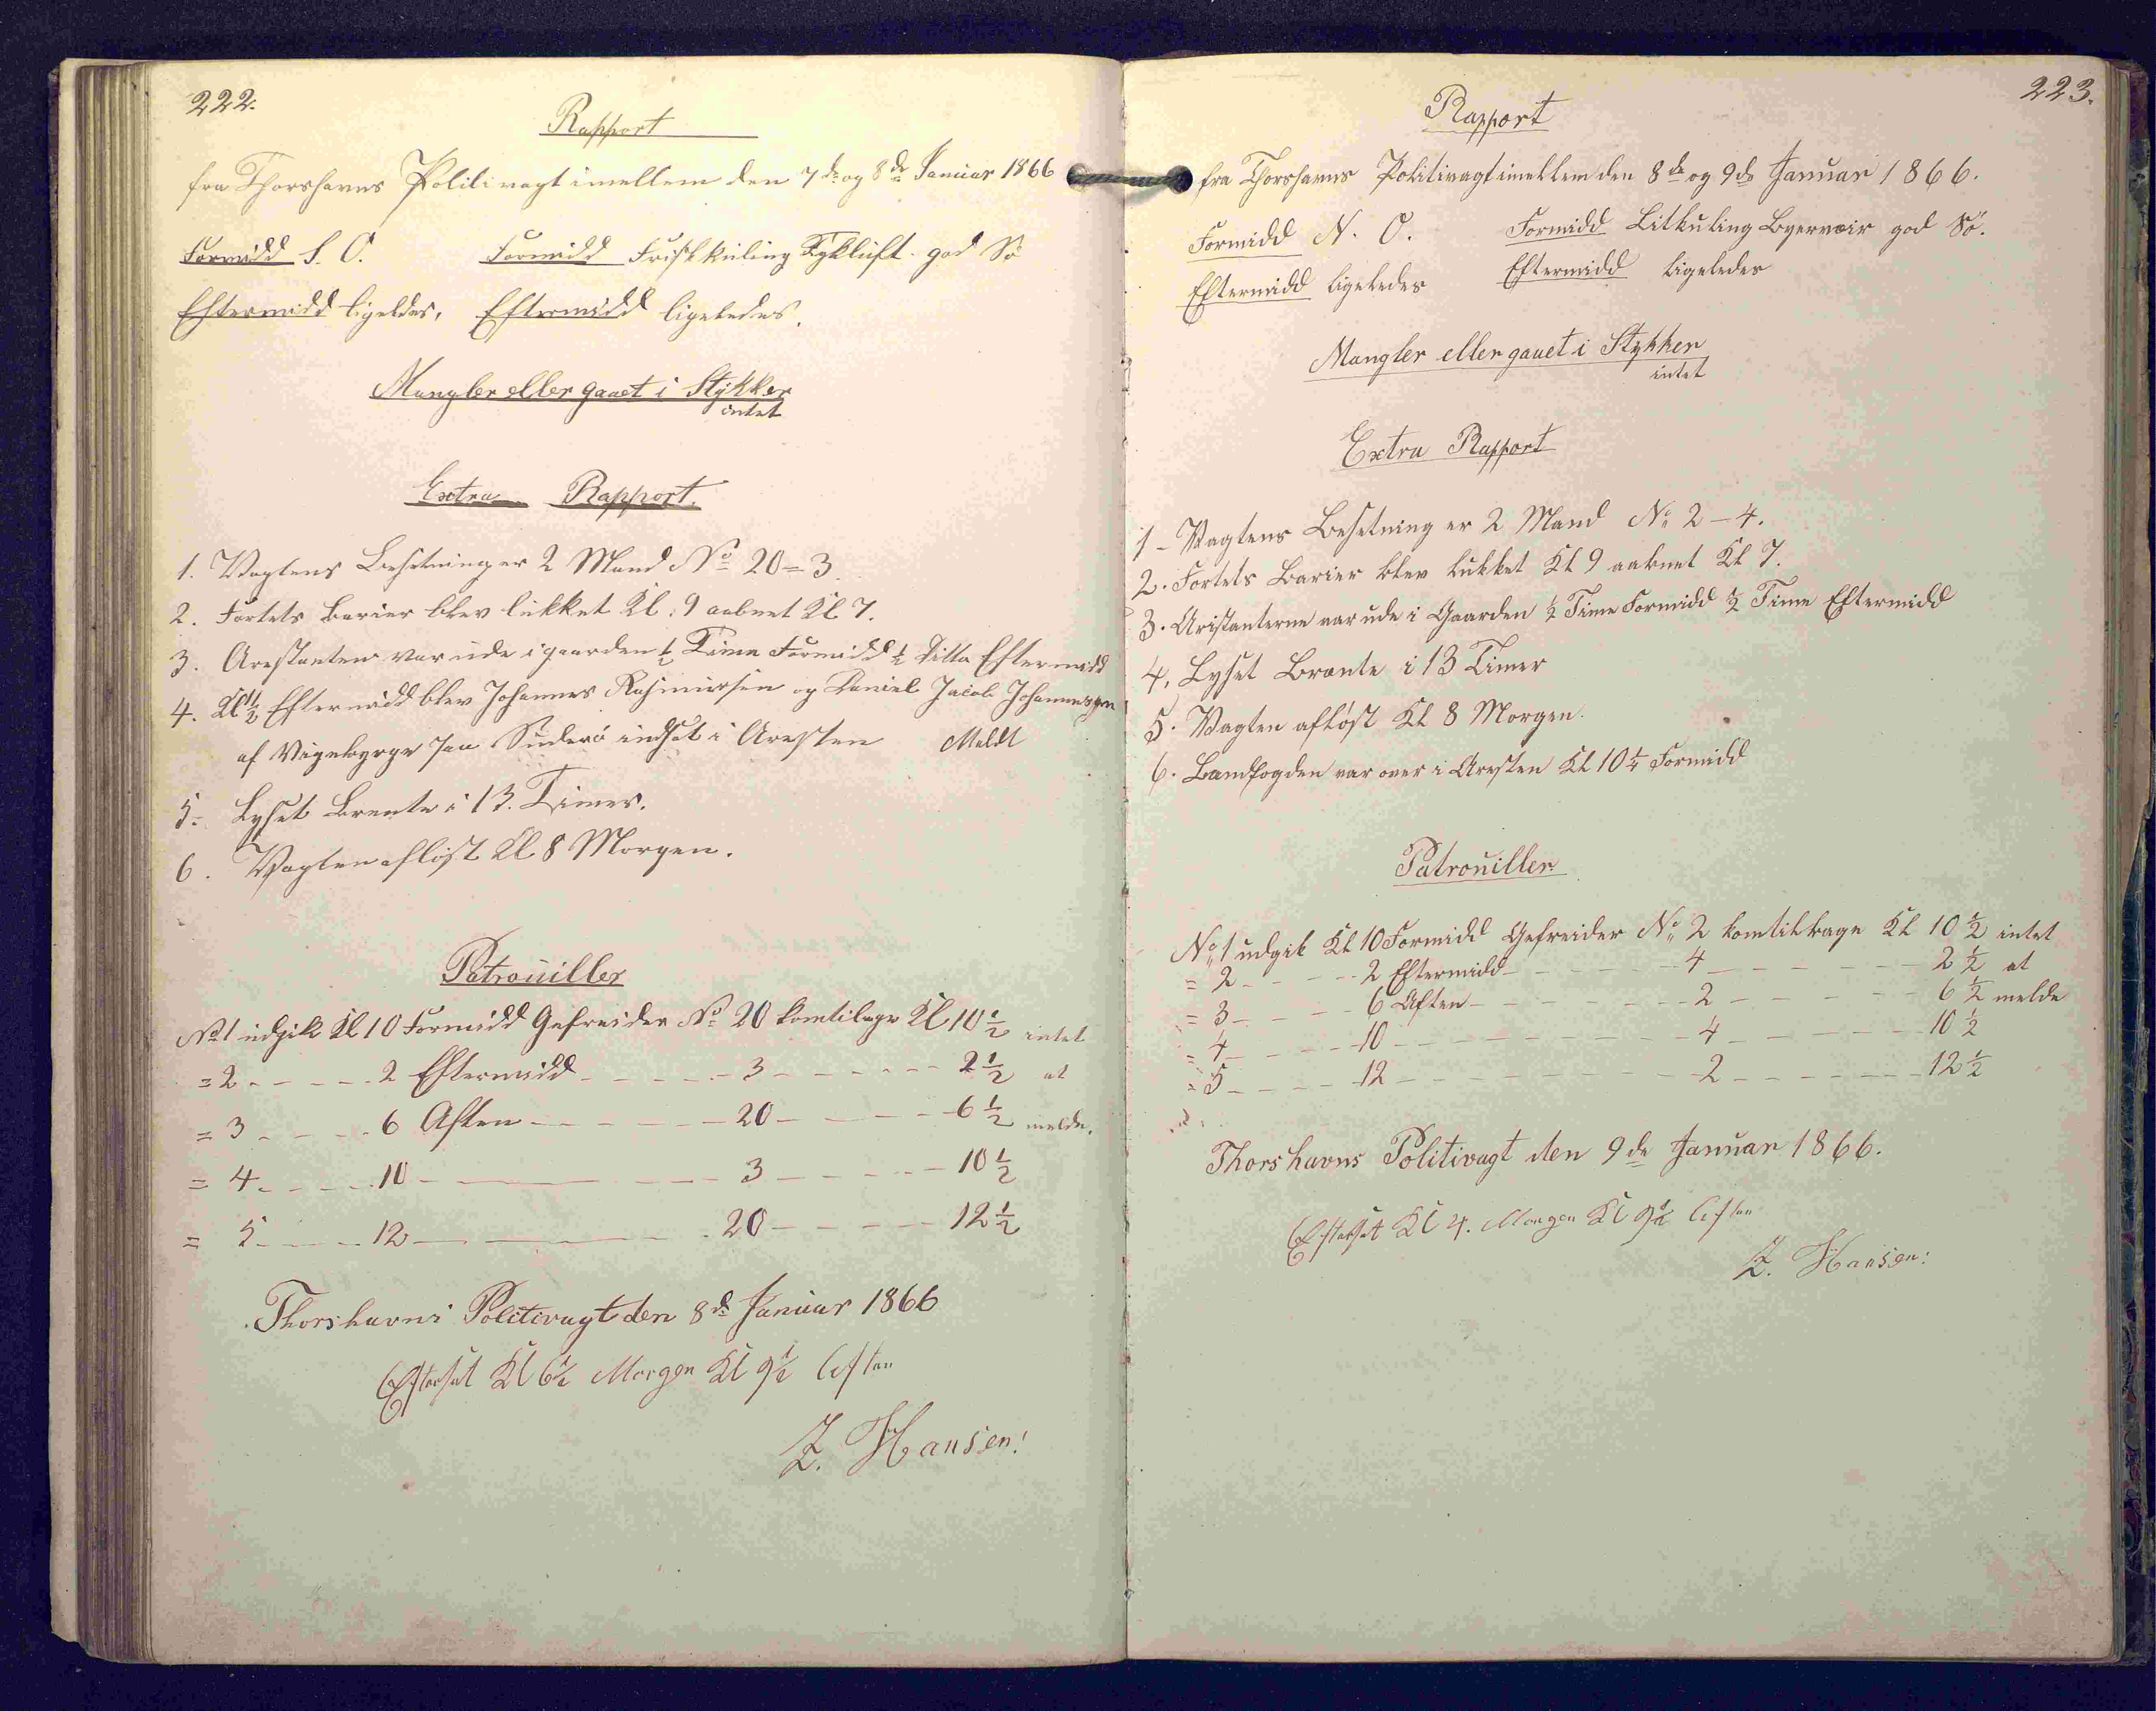 222.
Rapport
fra Thorshavns Politivagt imellem den 7de og 8de Januar 1866
Formidd S. O. Formidd Friskkuling Tykluft god Sö
Eftermidd ligeledes, Eftermidd ligeledes.
Mangler eller gaaet i Stykker
intet
Extra Rapport.
1. Vagtens Besetning er 2 Mand No 20=3.
2. Fortets Barier blev lukket Kl. 9 aabnet Kl 7.
3. Arestanten var ude i gaarden ½ Time Formidd ½ Ditto Eftermidd
4. Kl 1½ Eftermidd blev Johannes Rasmussen og Daniel Jacob Johannesen
af Vigebyrge paa Suderö indsat i Aresten Meldt
5. Lyset Brente i 13. Timer.
6. Vagten aflöst Kl 8 Morgen.
Patrouiller
No 1 udgik Kl 10 Formidd Gefreider No 20 komtilbage Kl 10½ intet
= 2 - - - - - 2 Eftermidd - - - - - 3 - - - - - - 2½ at
= 3 - - - - - 6 Aften - - - - - 20 - - - - - 6½ melde.
= 4 - - - - - 10 - - - - - 3 - - - - - 10½
= 5 - - - - - 12 - - - - - 20 - - - - - 12½
Thorshavns Politivagt den 8de Januar 1866
Efterset Kl 6½ Morgen Kl 9½ Aften
Z. Hansen!
223.
Rapport
fra Thorshavns Politivagt imellem den 8de og 9de Januar 1866.
Formidd N. O. Formidd Litkuling Byerveir god Sö.
Eftermidd ligeledes Eftermidd ligeledes
Mangler eller gaaet i Stykker
intet
Extra Rapport
1 - Vagtens Besetning er 2 Mand No 2 - 4.
2. Fortets Barier blev lukket Kl 9 aabnet Kl 7.
3. Aristanterne var ude i Gaarden ½ Time Formidd ½ Time Eftermidd
4. Lyset Brænte i 13 Timer
5. Vagten aflöst Kl 8 Morgen.
6. Landfogden var over i Aresten Kl 10¼ Formidd
Patrouiller
No 1 udgik Kl 10 Formidd Gefreider No 2 komtilbage Kl 10½ intet
= 2 - - - - - 2 Eftermidd - - - - - 4 - - - - - 2½ at
= 3 - - - - - 6 Aften - - - - - 2 - - - - - 6½ melde
= 4 - - - - - 10 - - - - - 4 - - - - - 10½
= 5 - - - - - 12 - - - - - 2 - - - - - 12½
Thorshavns Politivagt den 9de Januar 1866.
Efterset Kl 4. Morgen Kl 9½ Aften
Z. Hansen: